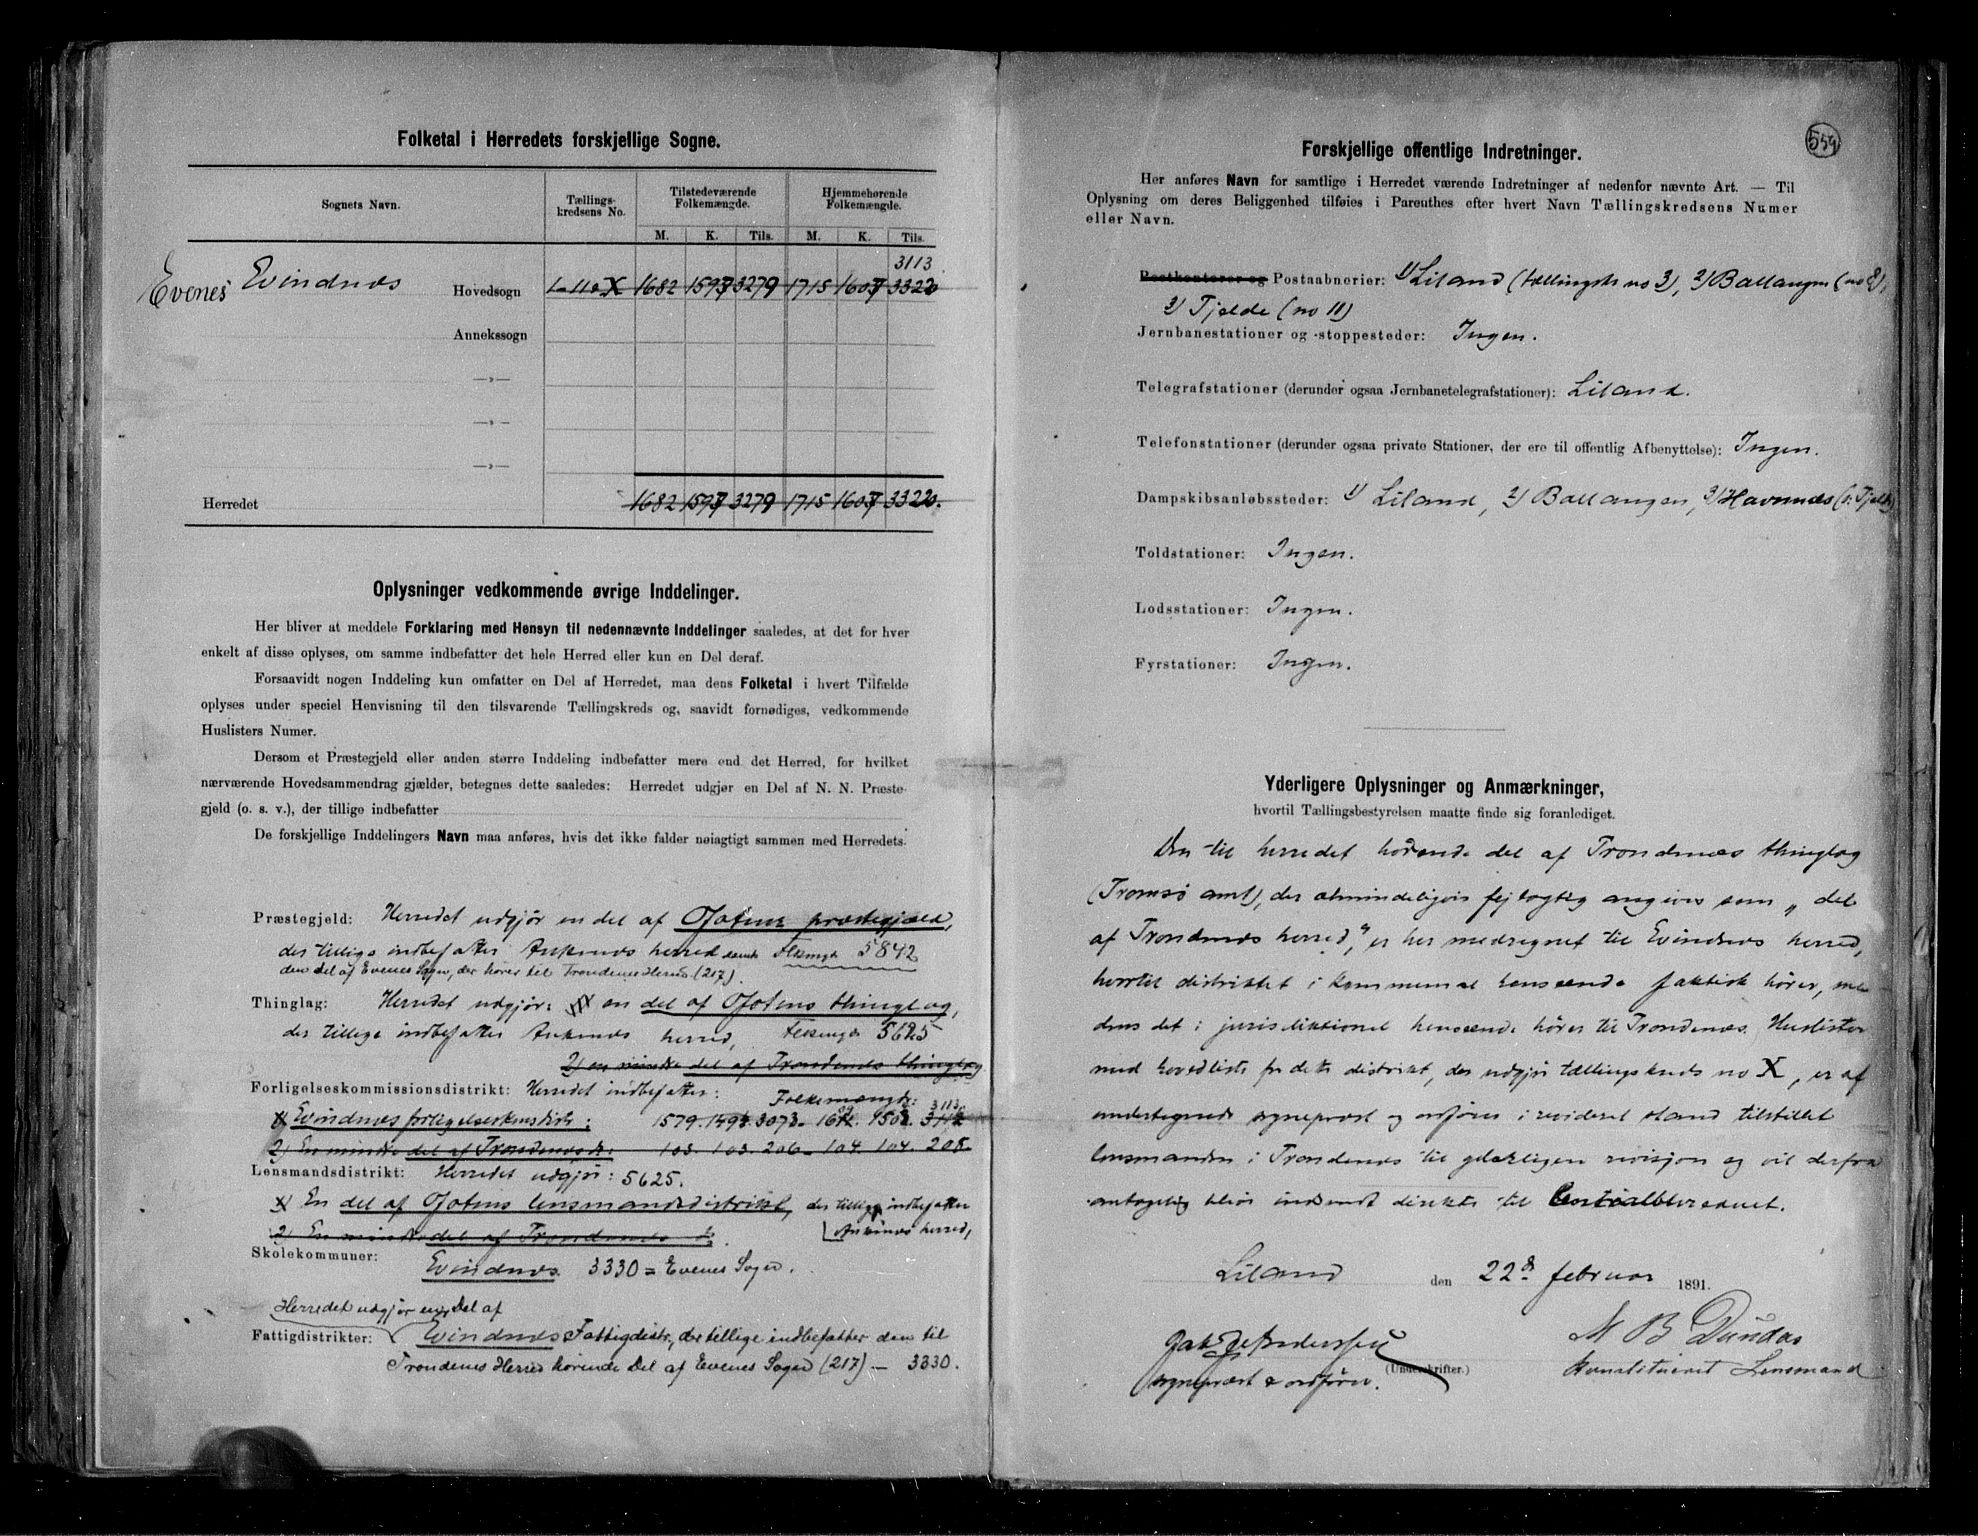 Folketal i Herredets forskjellige Sogne.
Sognets Navn.
Tællings-
kredsens No.
Tilstedeværende
Folkemængde.
Hjemmehørende
Folkemængde.
M. K. Tils. M. K. Tils.
3113
Evenes Evindnes Hovedsogn 1-11 & X 1682 1597 3279 1715 1607 3322
Annekssogn
—„—
—„—
—„—
Herredet 1682 1597 3279 1715 1607 3322.
Oplysninger vedkommende øvrige Inddelinger.
Her bliver at meddele Forklaring med Hensyn til nedennævnte Inddelinger saaledes, at det for hver
enkelt af disse oplyses, om samme indbefatter det hele Herred eller kun en Del deraf.
Forsaavidt nogen Inddeling kun omfatter en Del af Herredet, maa dens Folketal i hvert Tilfælde
oplyses under speciel Henvisning til den tilsvarende Tællingskreds og, saavidt fornødiges, vedkommende
Huslisters Numer.
Dersom et Præstegjeld eller anden større Inddeling indbefatter mere end det Herred, for hvilket
nærværende Hovedsammendrag gjælder, betegnes dette saaledes: Herredet udgjør en Del af N. N. Præste-
gjeld (o. s. v.), der tillige indbefatter
De forskjellige Inddelingers Navn maa anføres, hvis det ikke falder nøiagtigt sammen med Herredets.
Præstegjeld: Herredet udgjør en del af Ofotens præstegjæld,
der tillige indbefatter Ankenes herred samt 5842
den Del af Evenes Sogn, der hører til Trondenes Herred (217).
Thinglag: Herredet udgjør: en del af Ofotens thinglag,
der tillige indbefatter Ankenes herred, 5625
2) en mindre del af Trondenes thinglag
Forligelseskommissionsdistrikt: Herredet indbefatter:
Folkemængde:
1) Evindnes forligelseskmsdistr: 1579. 1494. 3073. 1503. 3113
2) En mindre del af Trondenes d: 103. 103. 206 – 104. 104. 208.
Lensmandsdistrikt: Herredet udgjør: 5625.
1) En del af Ofotens lensmandsdistrikt, der tillige indbefatter
Ankenes herred,
2) En mindre del af Trondenes d.
Skolekommuner:
Evindnes. 3330 = Evenes Sogn.
Herredet udgjør en Del af
Fattigdistrikter: Evindnes Fattigdistr., der tillige indbefatter den til
Trondenes Herred hørende Del af Evenes Sogn (217) — 3330.
559
Forskjellige offentlige Indretninger.
Her anføres Navn for samtlige i Herredet værende Indretninger af nedenfor nævnte Art. — Til
Oplysning om deres Beliggenhed tilføies i Parenthes efter hvert Navn Tællingskredsens Numer
eller Navn.
Postkontorer og Postaabnerier: 1) Liland (tællingskr no 3), 2) Ballangen (no 8),
3) Tjelde (no 11)
Jernbanestationer og -stoppesteder: Ingen.
Telegrafstationer (derunder ogsaa Jernbanetelegrafstationer): Liland.
Telefonstationer (derunder ogsaa private Stationer, der ere til offentlig Afbenyttelse): Ingen.
Dampskibsanløbssteder: 1) Liland, 2) Ballangen, 3) Havnnes (v. Tjeld)
Toldstationer: Ingen.
Lodsstationer: Ingen.
Fyrstationer: Ingen.
Yderligere Oplysninger og Anmærkninger,
hvortil Tællingsbestyrelsen maatte finde sig foranlediget.
Den til herredet hørende del af Trondenes thinglag
(Tromsø amt), der almindeligvis fejlagtig angives som „del
af Trondenes herred,“ er her medregnet til Evindnes herred,
hvortil distriktet i kommunal henseende faktisk hører, me-
dens det i jurisdiktionel henseende hører til Trondenes. Huslister
med hovedliste for dette distrikt, der udgjør tællingskreds no X, er af
undertegnede sogneprest og ordfører i revideret stand tilstillet
lensmanden i Trondenes til yderligere revisjon og vil derfra
antagelig blive indsendt direkte til Centralbureauet.
Liland den 22de februar 1891.
M B Dundas
(Underskrifter.) konstitueret Lensmand
sogneprest & ordfører.